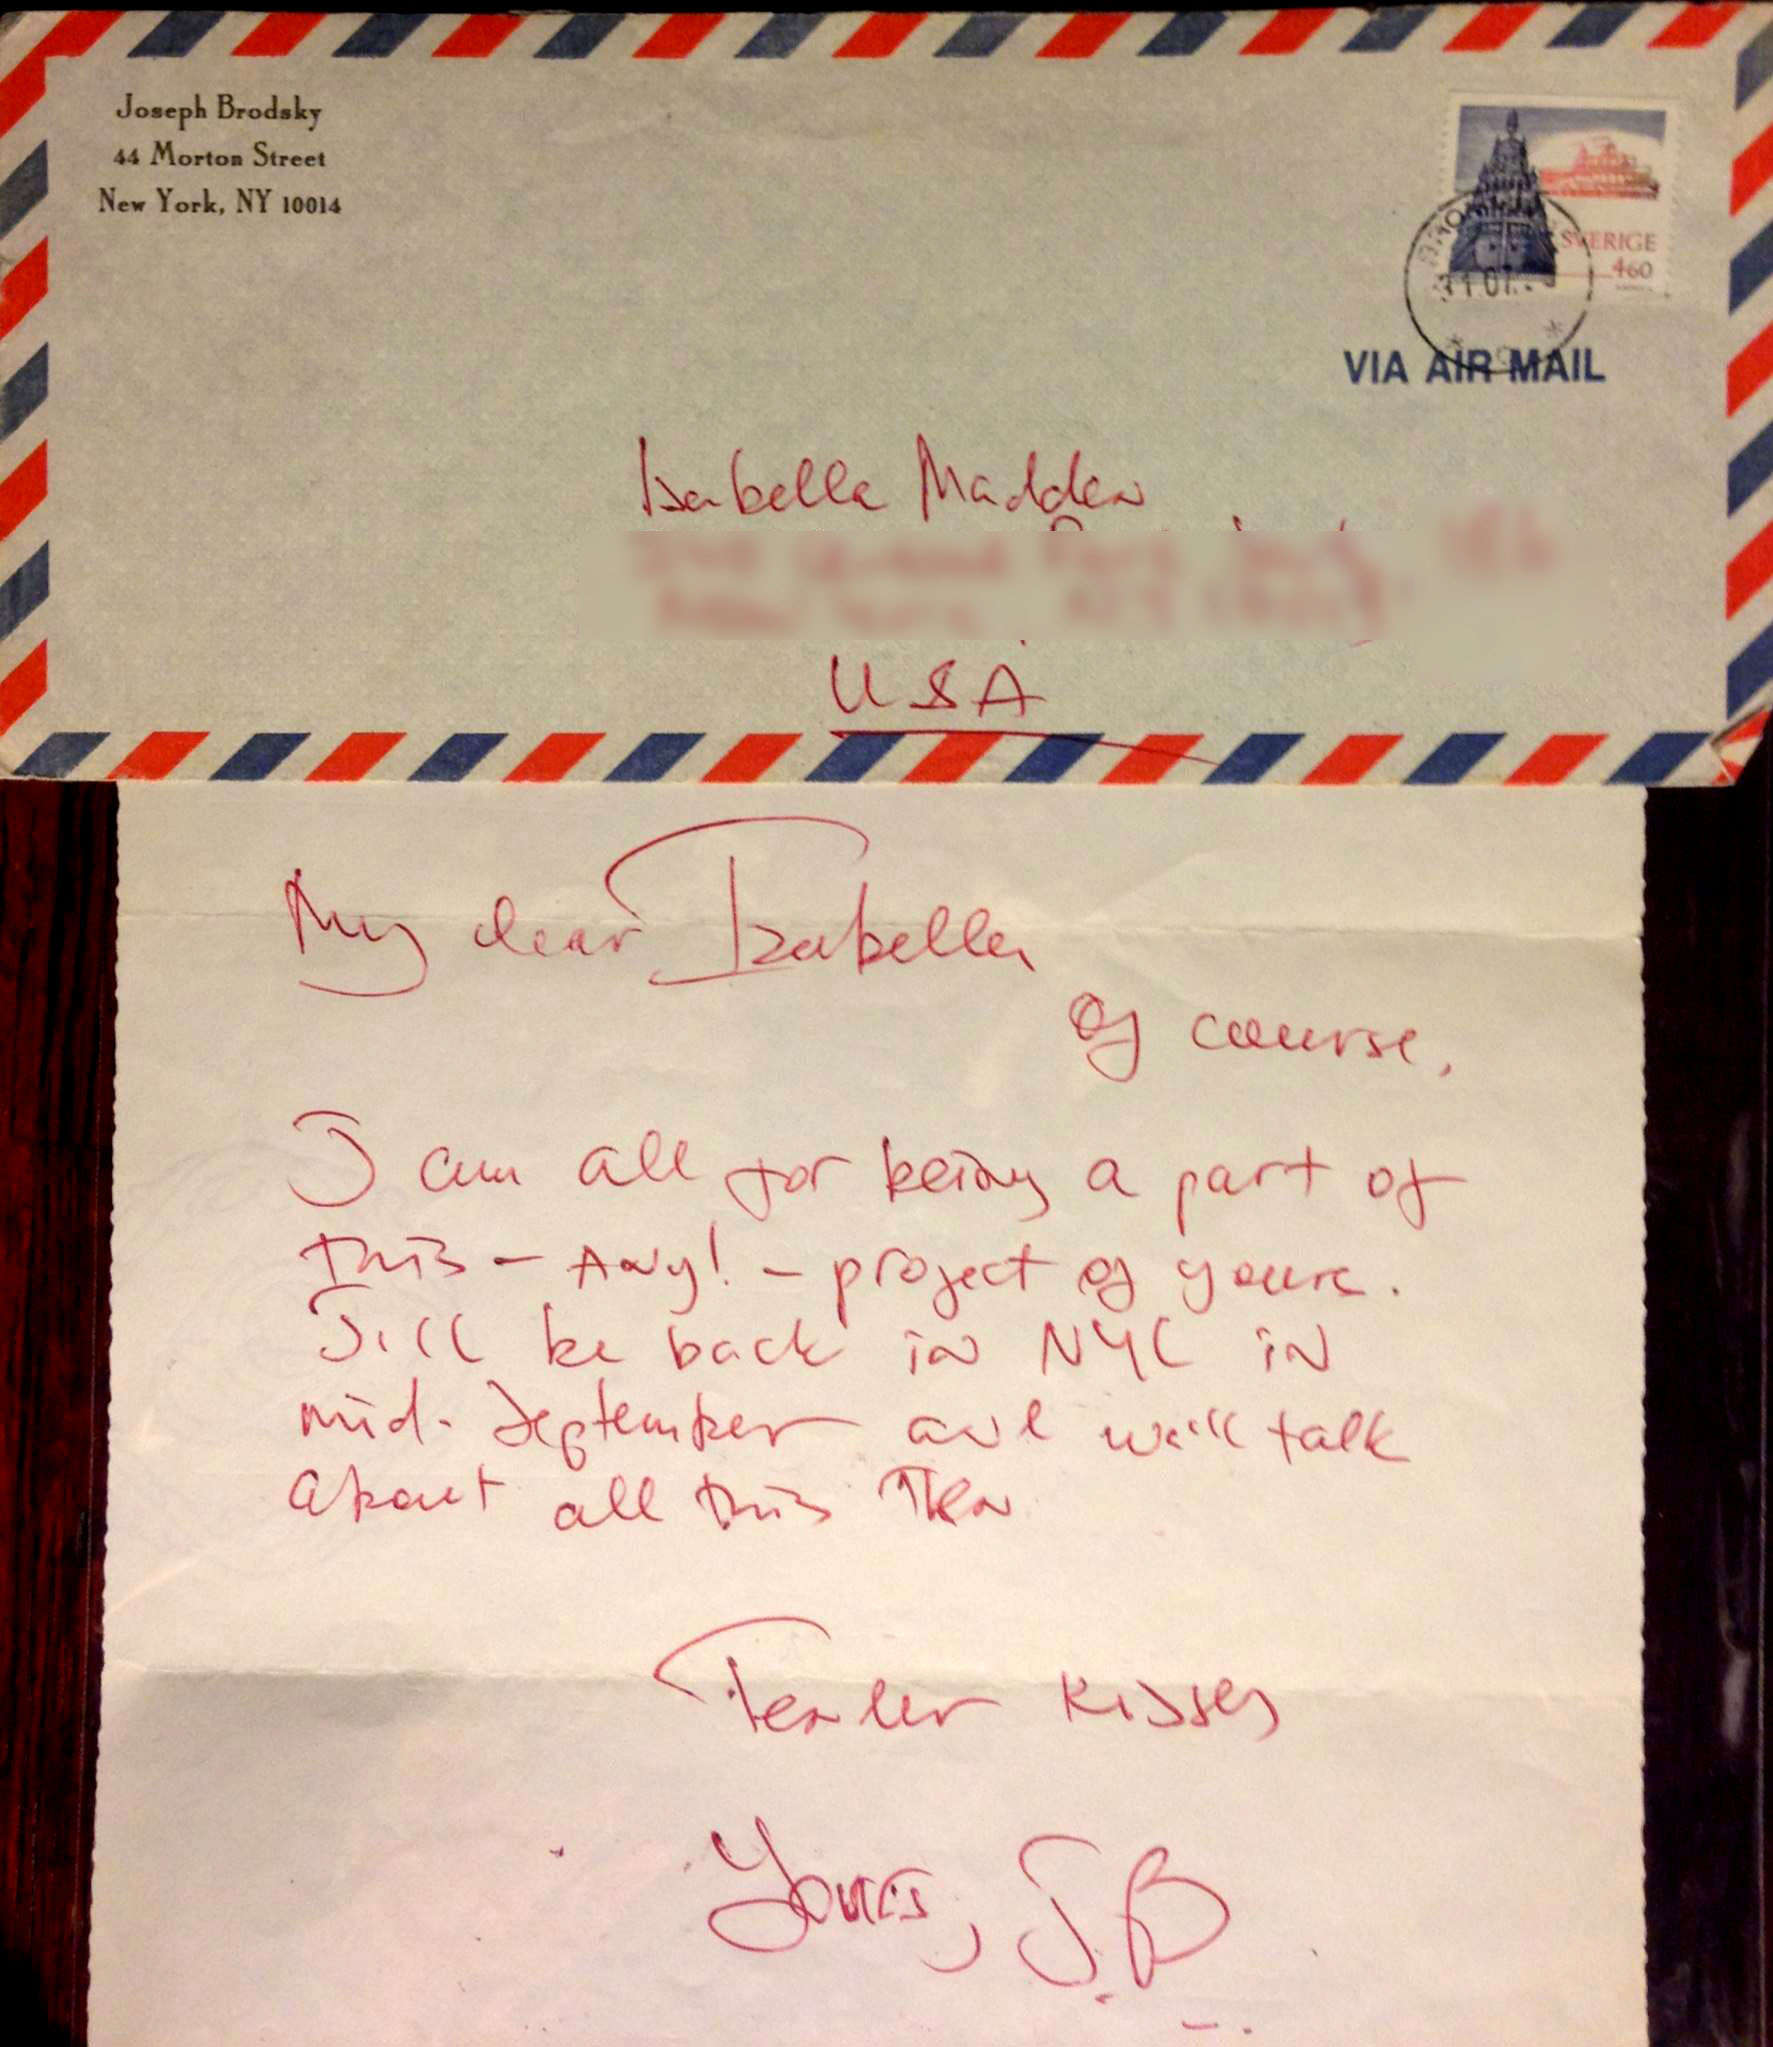 Joseph Brodsky
44 Morton Street
New York, NY 10014
SVERIGE
460
VIA AIR MAIL
Isabella Madden
USA
My dear Isabella
Of course,
I am all for being a part of
this - Any! - project of yours.
I'll be back in NYC in
mid-September and we'll talk
about all this Then
Tender Kisses
Yours, J.B